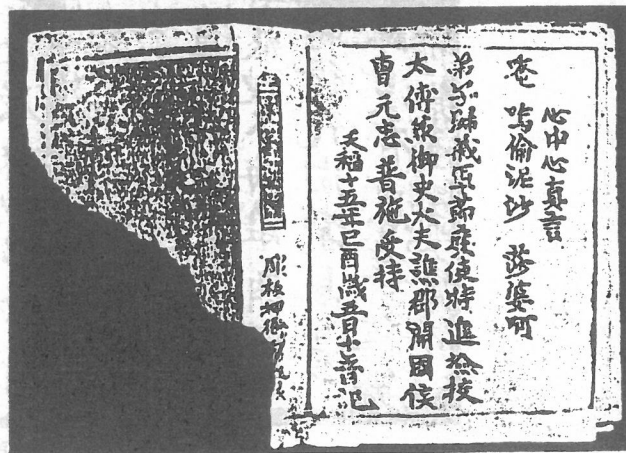 心中心真言
唵 嗚倫泥沙 莎婆呵
弟子歸義軍節度使特進檢校
太傅兼御史大夫譙郡開國侯
曹元忠普施受持
天福十五年己酉歲五月十五日記
彫板押衙